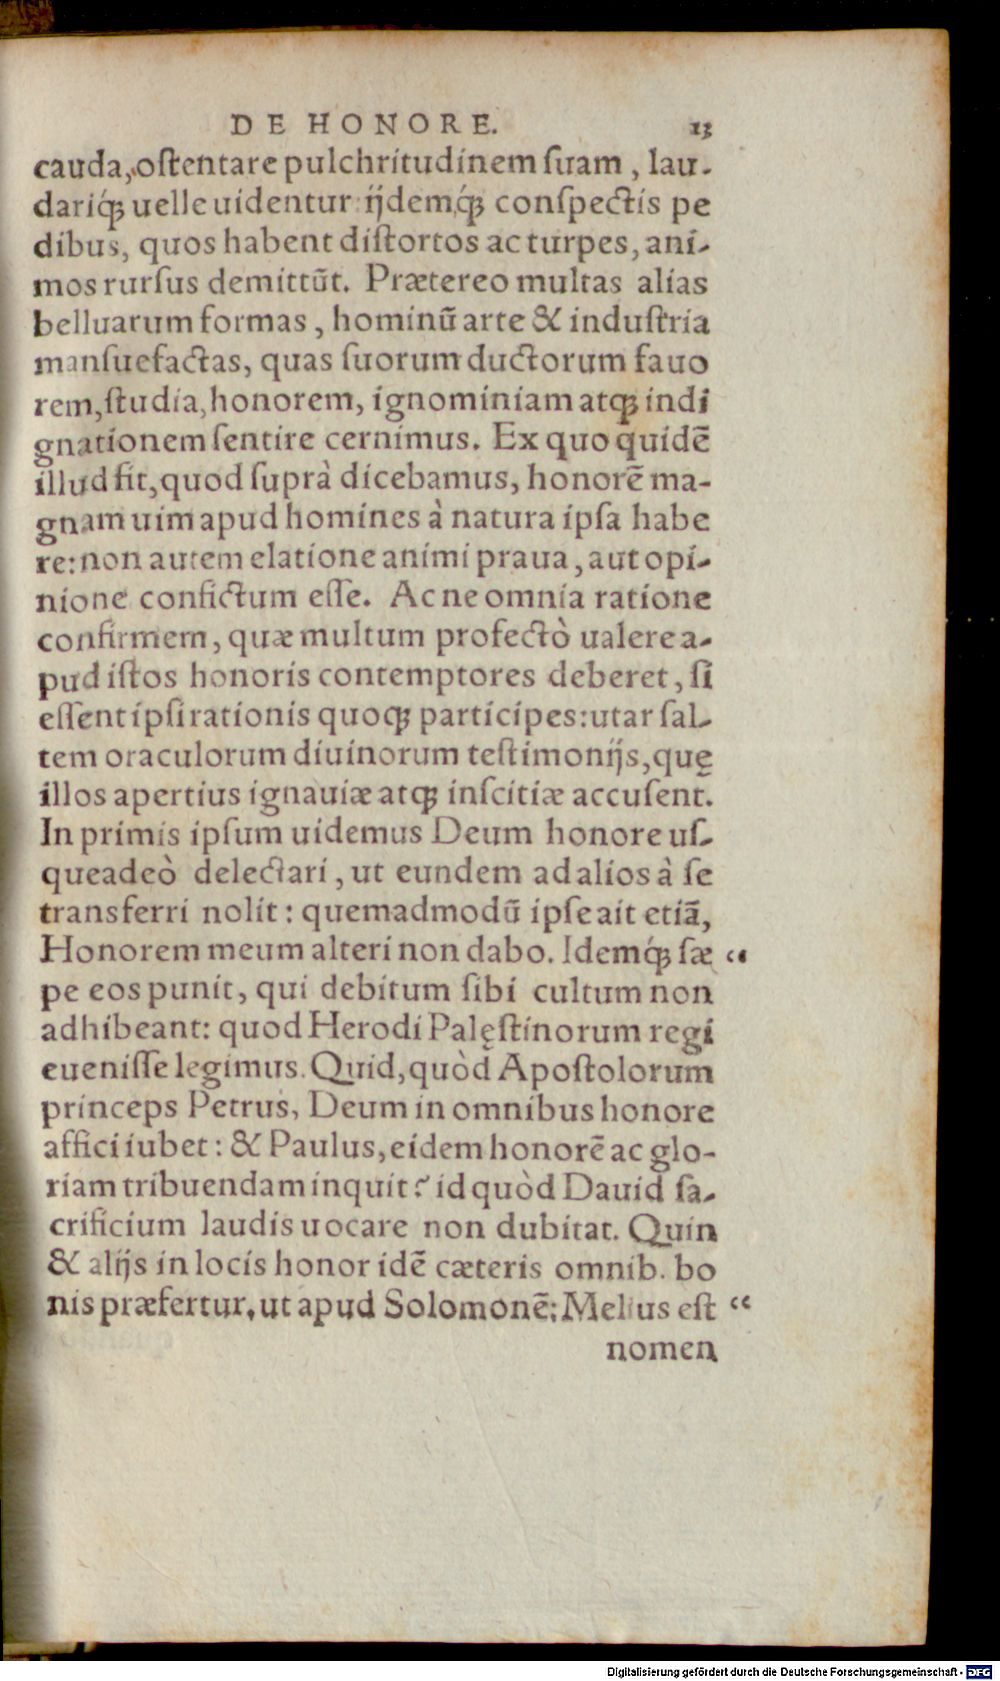 DE HONORE. 13
cauda, ostentare pulchritudinem suam, lau-
dariq́ꝫ uelle uidentur ijdemq́ꝫ conspectis pe
dibus, quos habent distortos ac turpes, ani-
mos rursus demittūt. Prætereo multas alias
belluarum formas, hominū arte & industria
mansuefactas, quas suorum ductorum fauo
rem, studia, honorem, ignominiam atqꝫ indi
gnationem sentire cernimus. Ex quo quidē
illud fit, quod suprà dicebamus, honorē ma-
gnam uim apud homines à natura ipsa habe
re: non autem elatione animi praua, aut opi-
nione confictum esse. Ac ne omnia ratione
confirmem, quæ multum profectò ualere a-
pud istos honoris contemptores deberet, si
essent ipsi rationis quoqꝫ participes: utar sal-
tem oraculorum diuinorum testimonijs, quę
illos apertius ignauiæ atqꝫ inscitiæ accusent.
In primis ipsum uidemus Deum honore us-
queadeò delectari, ut eundem ad alios à se
transferri nolit: quemadmodū ipse ait etiā,
Honorem meum alteri non dabo. Idemq́ꝫ sæ “
pe eos punit, qui debitum sibi cultum non
adhibeant: quod Herodi Palęstinorum regi
euenisse legimus. Quid, quòd Apostolorum
princeps Petrus, Deum in omnibus honore
affici iubet: & Paulus, eidem honorē ac glo-
riam tribuendam inquit? id quòd Dauid sa-
crificium laudis uocare non dubitat. Quin
& alijs in locis honor idē cæteris omnib. bo
nis præfertur, ut apud Solomonē: Melius est “
nomen
Digitalisierung gefördert durch die Deutsche Forschungsgemeinschaft - DFG